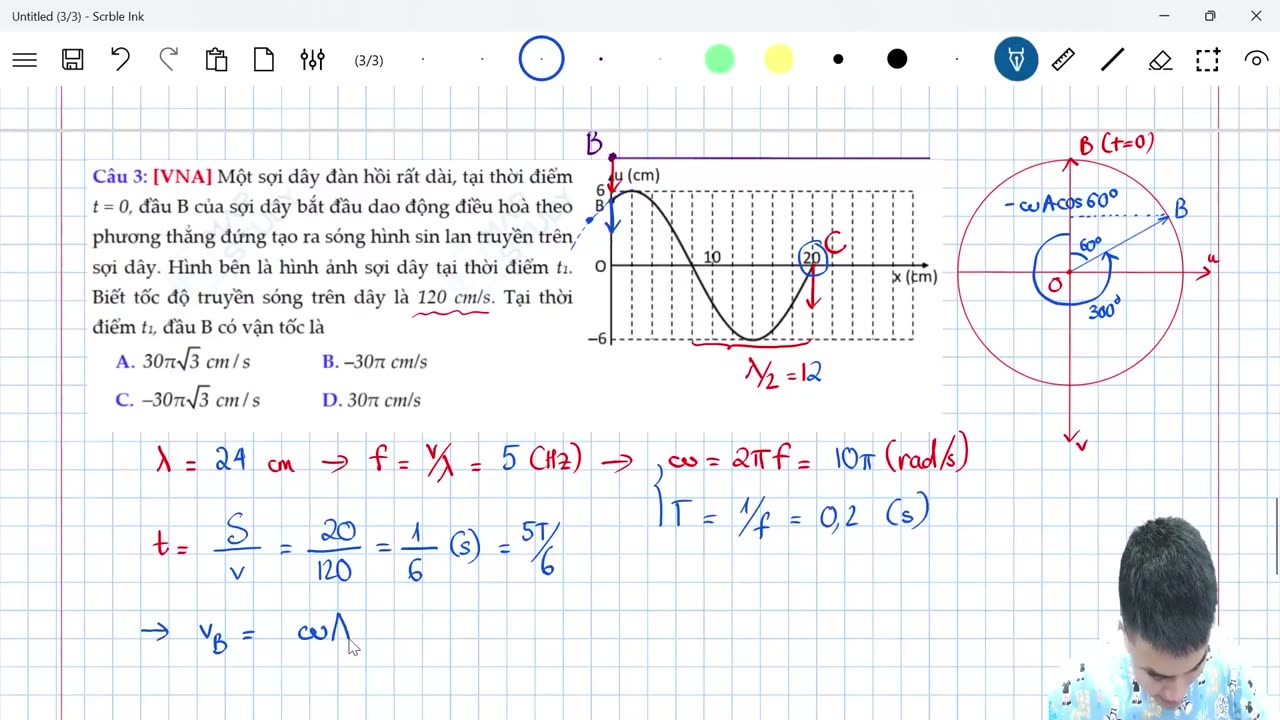 Untitled (3/3) - Scrble Ink
(3/3)
Câu 3: [VNA] Một sợi dây đàn hồi rất dài, tại thời điểm
t = 0, đầu B của sợi dây bắt đầu dao động điều hoà theo
phương thẳng đứng tạo ra sóng hình sin lan truyền trên
sợi dây. Hình bên là hình ảnh sợi dây tại thời điểm t₁.
Biết tốc độ truyền sóng trên dây là 120 cm/s. Tại thời
điểm t₁, đầu B có vận tốc là
A. 30π√3 cm/s
B. –30π cm/s
C. –30π√3 cm/s
D. 30π cm/s
B
u (cm)
6
B
O
10
20
C
x (cm)
–6
λ/2 = 12
B (t=0)
-ωAcos60°
B
60°
u
O
300°
v
λ = 24 cm → f = v/λ = 5 (Hz) → ω = 2πf = 10π (rad/s)
T = 1/f = 0,2 (s)
t = S/v = 20/120 = 1/6 (s) = 5T/6
→ v_B = ωA